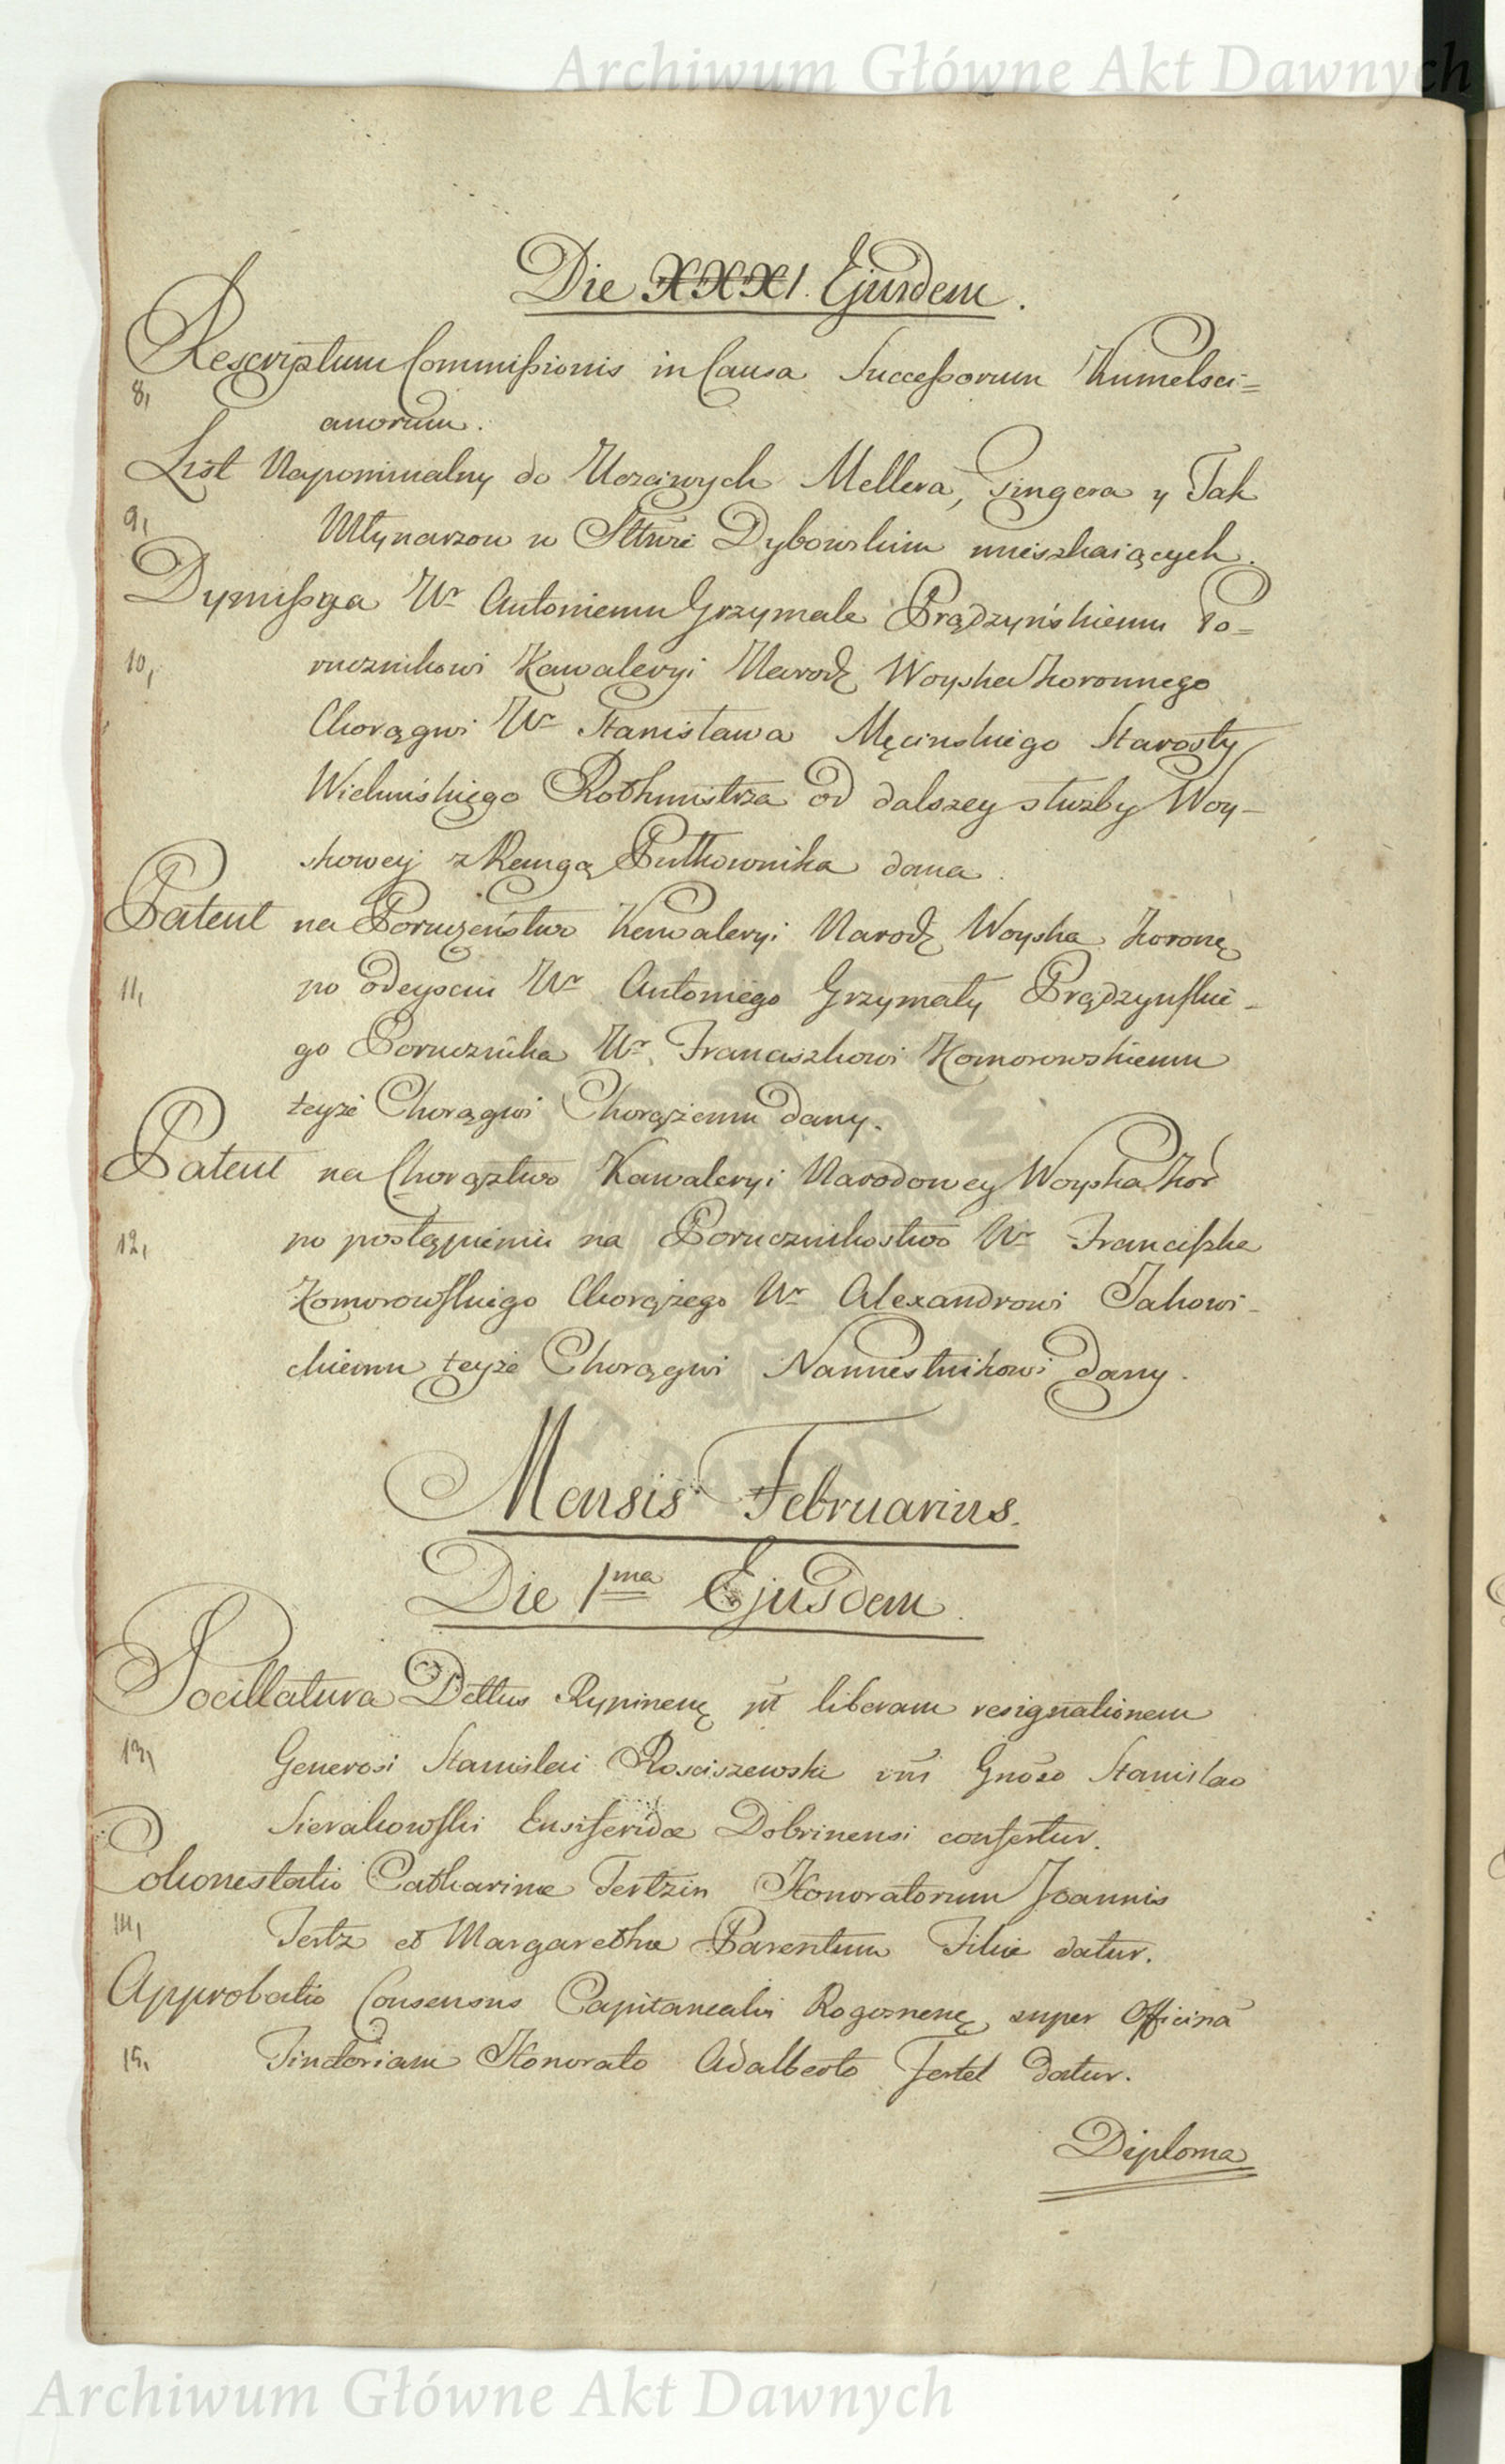 Archiwum Główne Akt Dawnych
Die XXXI. Ejusdem.
Rescriptum Commißionis in Causa Succeßorum Kumelsci=
8,
anorum.
List Napominalny do Uczciwych Mellera, Singera y Tak
9,
Młynarzow w Sttwie Dybowskim mieszkaiących.
Dymißya Ur Antoniemu Grzymale Prądzyńskiemu Po=
10,
rucznikowi Kawaleryi Narod Woyska Koronnego
Chorągwi Ur Stanisława Męcinskiego Starosty
Wieluńskiego Rothmistrza od dalszey służby Woy-
skowey z Rangą Pułkownika dana.
Patent na Poruczeństwo Kawaleryi Narod Woyska Koronę
11,
po odeyściu Ur Antoniego Grzymały Prądzynskie-
go Porucznika Ur Franciszkowi Komorowskiemu
teyże Chorągwi Chorążemu dany.
Patent na Chorąztwo Kawaleryi Narodowey Woyska Kor
12,
po postąpieniu na Porucznikostwo Ur Francißka
Komorowskiego Chorążego Ur Alexandrowi Jakowi-
ckiemu teyże Chorągwi Namiestnikowi dany.
Mensis Februarius.
Die 1ma Ejusdem.
Pocillatura Dettus Rypinenę pt liberam resignationem
13,
Generosi Stanislai Rosciszewski vni Gnoso Stanislao
Sierakowski Ensiferidæ Dobrinensi confertur.
Cohonestatio Catharinæ Tertzin Honoratorum Joannis
14,
Tertz et Margarethæ Parentum Filiæ datur.
Approbatio Consensus Capitanealis Rogoznenę super Officinā
15,
Tinctoriam Honorato Adalberto Fertel datur.
Diploma
Archiwum Główne Akt Dawnych